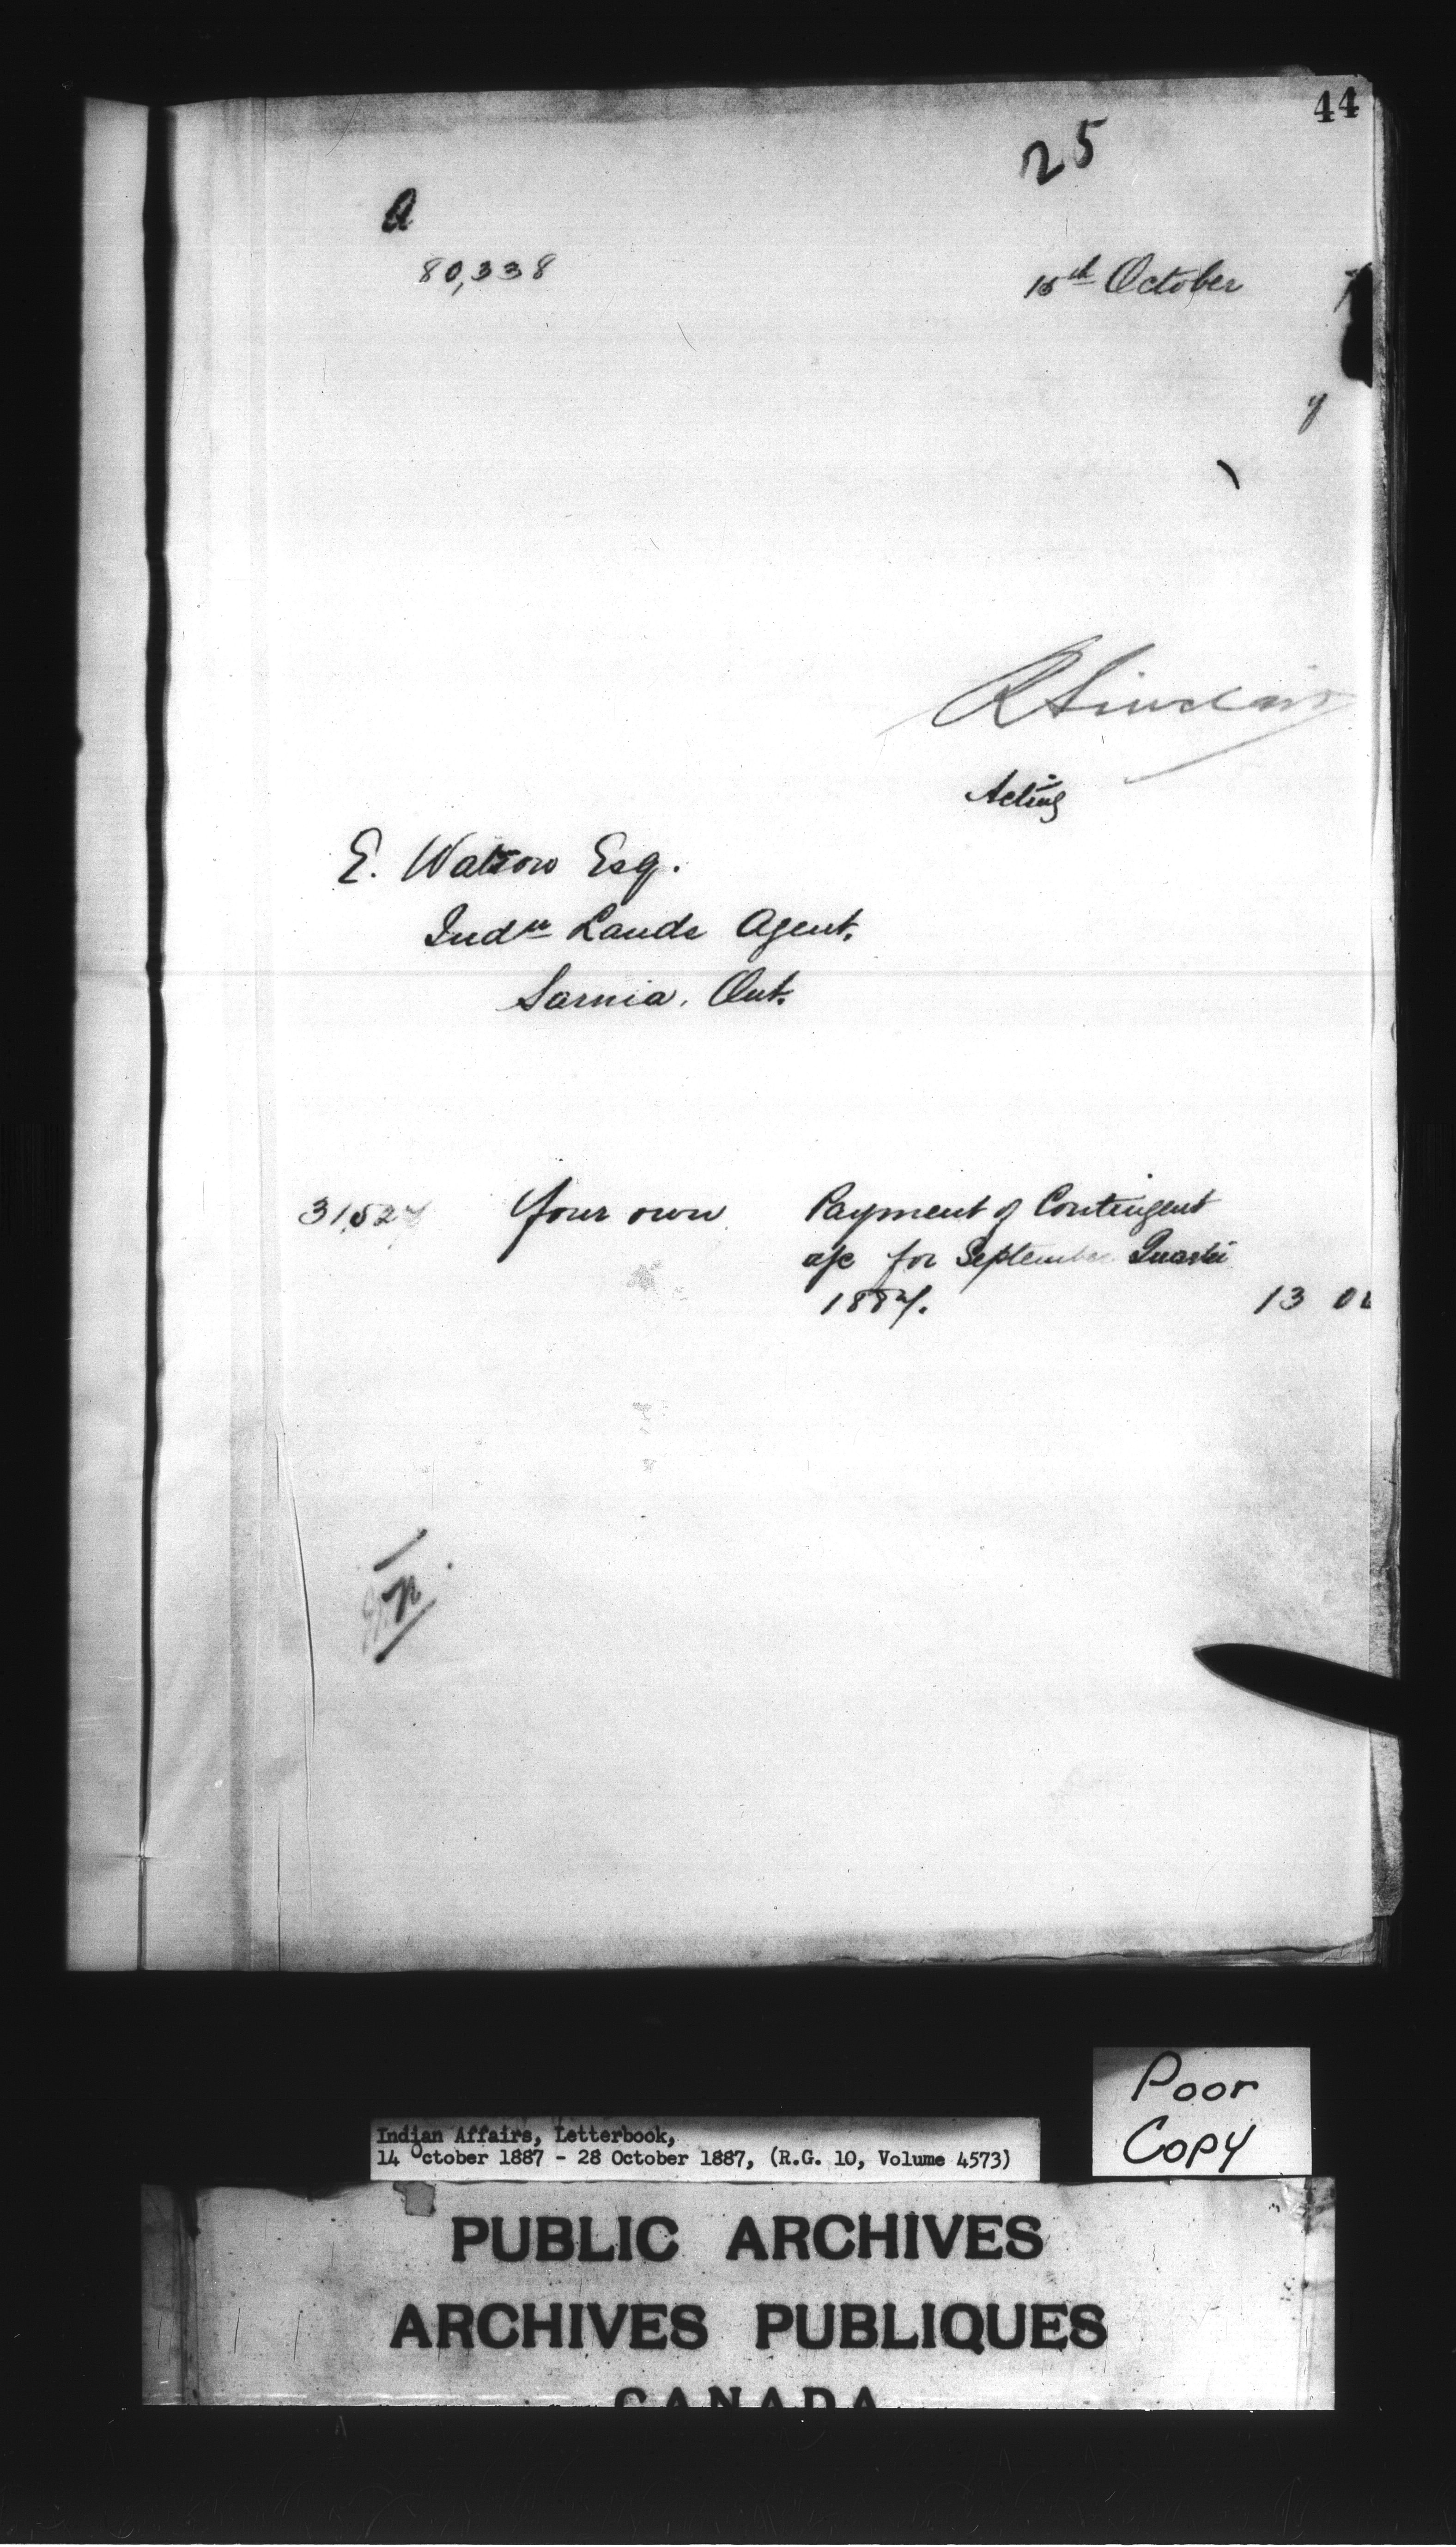 44
25
A
80,338
15th October
7
y
R Sinclair
Acting
E. Watson Esq.
Indn Lands Agent,
Sarnia. Ont.
31,527 Your own Payment of Contingent
a/c for September Quarter
1887. 13 0
Poor
Copy
Indian Affairs, Letterbook,
14 October 1887 - 28 October 1887, (R.G. 10, Volume 4573)
PUBLIC ARCHIVES
ARCHIVES PUBLIQUES
CANADA